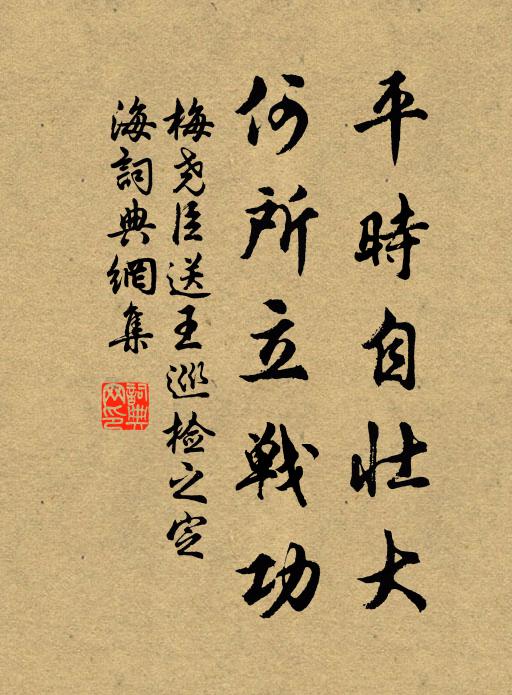 平時自壯大
何所立戰功
梅尧臣送王巡检之定
海詞典網集
詞典网印